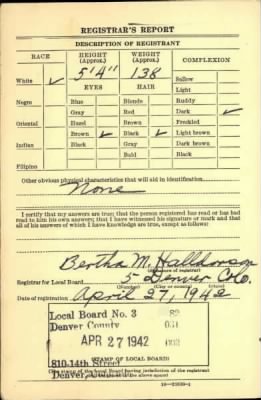 REGISTRAR'S REPORT
DESCRIPTION OF REGISTRANT
RACE HEIGHT (Approx.) WEIGHT (Approx.) COMPLEXION
White ✓ 5'4" 138 Sallow
EYES HAIR Light
Negro Blue Blonde Ruddy
Gray Red Dark ✓
Oriental Hazel Brown Freckled
Brown ✓ Black ✓ Light brown
Indian Black Gray Dark brown
Bald Black
Filipino
Other obvious physical characteristics that will aid in identification
None
I certify that my answers are true; that the person registered has read or has had
read to him his own answers; that I have witnessed his signature or mark and that
all of his answers of which I have knowledge are true, except as follows:
Bertha M. Halldorson
(Signature of registrar)
Registrar for Local Board 5 Denver Colo.
(Number) (City or county) (State)
Date of registration April 27, 1942
Local Board No. 3 82
Denver County 031
APR 27 1942
810-14th Street
(STAMP OF LOCAL BOARD)
Denver,
of the Local Board having jurisdiction of the registrant